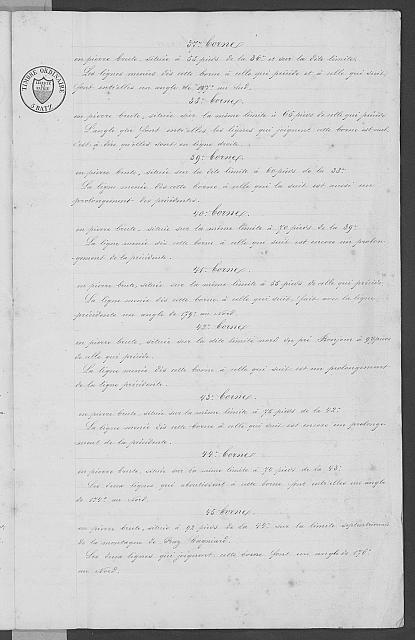 37e borne.
en pierre brute, située à 55 pieds de la 36e et sur la dite limite.
Les lignes menées dès cette borne à celle qui précède et à celle qui suit,
font entr'elles un angle de au Sud.
TIMBRE ORDINAIRE
5 BATZ
38e borne.
en pierre brute, située sur la même limite à 65 pieds de celle qui précède.
L'angle que font entr'elles les lignes qui joignent cette borne est nul,
c'est à dire qu'elles sont en ligne droite.
39e borne.
en pierre brute, située sur la dite limite à 60 pieds de la 38e
La ligne menée dès cette borne à celle qui la suit est aussi un
prolongement des précédentes.
40e borne.
en pierre brute, située sur la même limite à 70 pieds de la 39e
La ligne menée dès cette borne à celle qui suit est encore un prolon-
-gement de la précédente.
41e borne.
en pierre brute, située sur la même limite à 55 pieds de celle qui précède.
La ligne menée dès cette borne à celle qui suit, fait avec la ligne
précédente un angle de 179° au Nord.
42e borne.
en pierre brute, située sur la dite limite nord du pré à 92 pieds
de celle qui précède.
La ligne menée dès cette borne à celle qui suit est un prolongement
de la ligne précédente.
43e borne.
en pierre brute, située sur la même limite à 75 pieds de la 42e
La ligne menée dès cette borne à celle qui suit est encore un prolonge-
ment de la précédente.
44e borne.
en pierre brute, située sur la même limite à 70 pieds de la 43e
Les deux lignes qui aboutissent à cette borne font entr'elles un angle
de 174° au Nord.
45e borne.
en pierre brute, située à 92 pieds de la 44e sur la limite septentrionale
de la montagne de Praz
Les deux lignes qui joignent cette borne font un angle de 176°
au Nord.